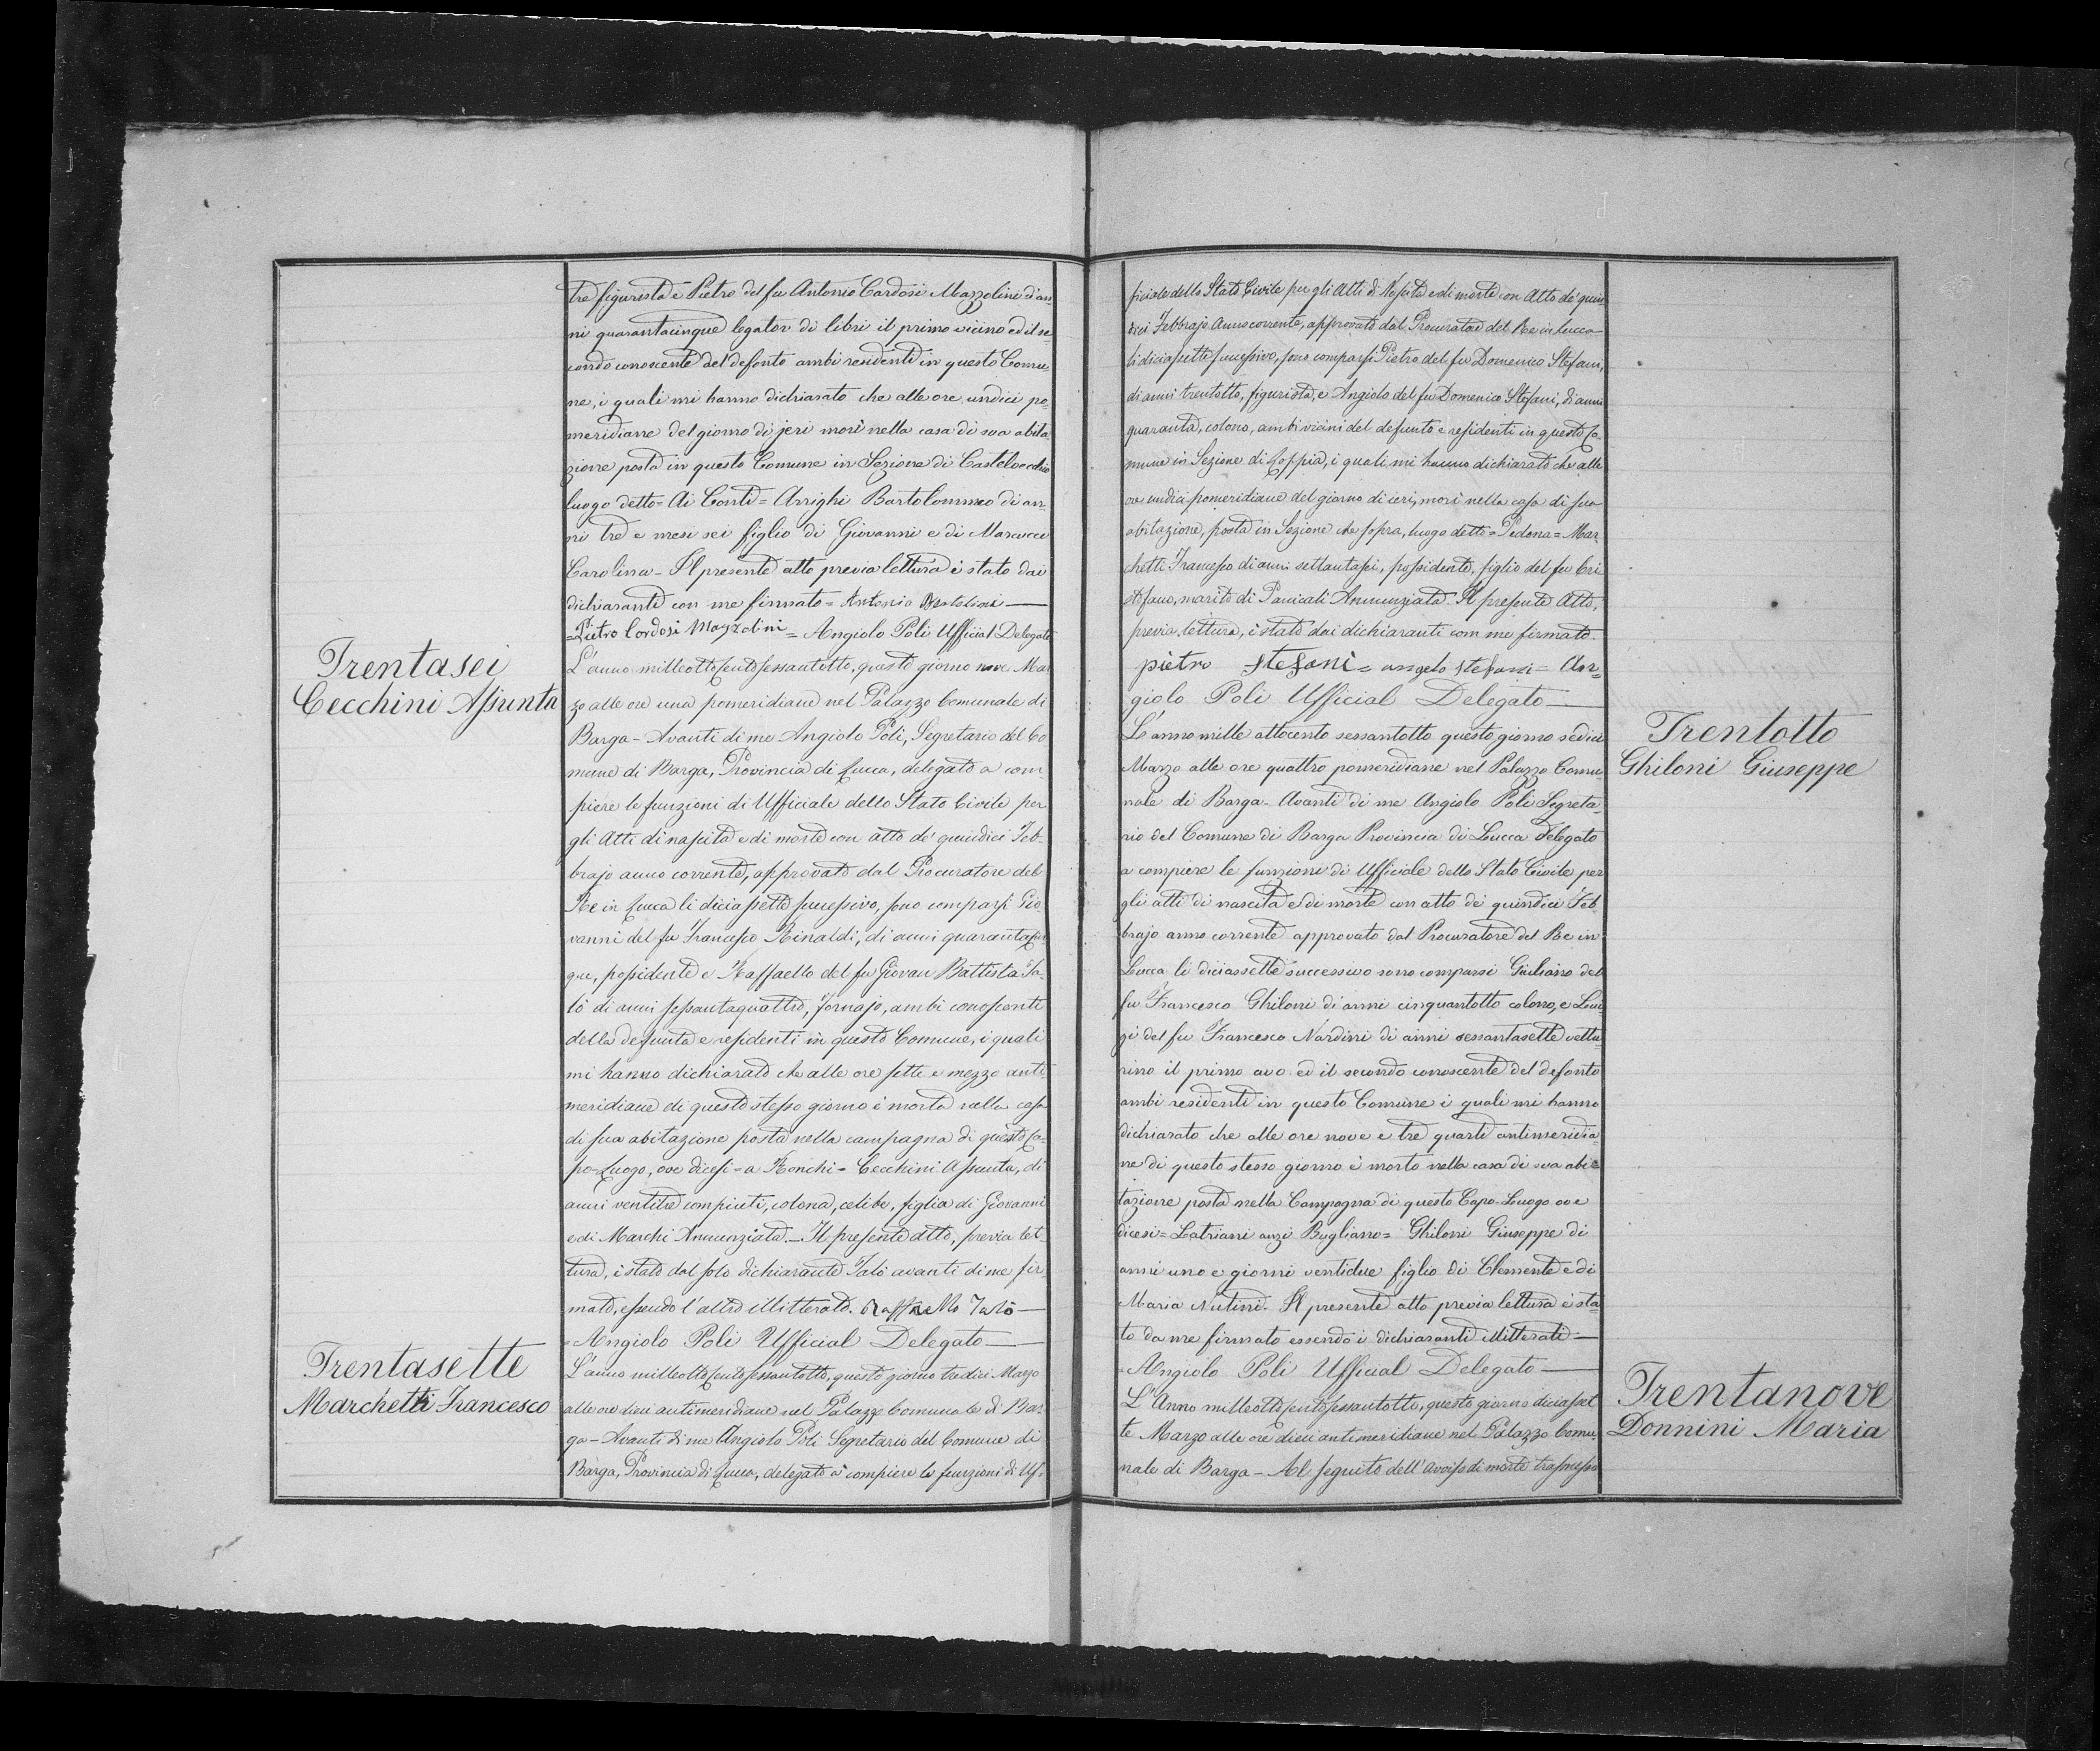 tre figurista e Pietro del fu Antonio Cardosi Mazzolini d'an
ni quarantacinque legator di libri il primo vicino ed il se
condo conoscente del defonto ambi residenti in questo Comu
ne, i quali mi hanno dichiarato che alle ore undici po
meridiane del giorno di jeri morì nella casa di sua abita
zione posta in questo Comune in Sezione di Castelvecchio
luogo detto = Ai Conti = Arrighi Bartolommeo di an
ni tre e mesi sei figlio di Giovanni e di Marcucci
Carolina - Il presente atto previa lettura è stato dai
dichiaranti con me firmato = Antonio Bertolini —
= Pietro Cordosi Mazzolini = Angiolo Poli Ufficial Delegato
Trentasei
Cecchini Assunta
L'anno milleottocentosessantotto, questo giorno nove Mar
zo alle ore una pomeridiane nel Palazzo Comunale di
Barga - Avanti di me Angiolo Poli, Segretario del Co
mune di Barga, Provincia di Lucca, delegato a com
piere le funzioni di Uffiziale dello Stato Civile per
gli Atti di nascita e di morte con atto de' quindici Feb-
brajo anno corrente, approvato dal Procuratore del
Re in Lucca li diciassette successivo, sono comparsi Gio
vanni del fu Francesco Rinaldi, di anni quarantacin
que, possidente e Raffaello del fu Giovan Battista Ta-
lò di anni sessantaquattro, fornajo, ambi conoscenti
della defunta e residenti in questo Comune, i quali
mi hanno dichiarato che alle ore sette e mezzo anti
meridiane di questo stesso giorno è morta nella casa
di sua abitazione posta nella campagna di questo Ca-
po-Luogo, ove dicesi = a Ronchi = Cecchini Assunta, di
anni ventitre compiuti, colona, celibe, figlia di Giovanni
e di Marchi Annunziata. - Il presente atto, previa let-
tura, è stato dal solo dichiarante Talò avanti di me fir
mato, essendo l'altro illitterato. Raffaello Talò —
= Angiolo Poli Ufficial Delegato —
Trentasette
Marchetti Francesco
L'anno milleottocentosessantotto, questo giorno tredici Marzo
alle ore dieci antimeridiane nel Palazzo Comunale di Bar
ga - Avanti di me Angiolo Poli Segretario del Comune di
Barga, Provincia di Lucca, delegato a compiere le funzioni di Uf-
ficiale dello Stato Civile per gli Atti di Nascita e di morte con Atto de' quin
dici Febbrajo Anno corrente, approvato dal Procuratore del Re in Lucca
li diciassette successivo, sono comparsi Pietro del fu Domenico Stefani,
di anni trentotto, figurista, e Angiolo del fu Domenico Stefani, di anni
quaranta, colono, ambi vicini del defunto e residenti in questo Co
mune in Sezione di Loppia, i quali mi hanno dichiarato che alle
ore undici pomeridiane del giorno di ieri, morì nella casa di sua
abitazione, posta in Sezione che sopra, luogo detto = Pedona = Mar
chetti Francesco di anni settantasei, possidente, figlio del fu Cri
stofano, marito di Panicali Annunziata. Il presente Atto,
previa lettura, è stato dai dichiaranti con me firmato.
pietro stefani = angelo stefani = An=
giolo Poli Ufficial Delegato —
Trentotto
Ghiloni Giuseppe
L'anno mille ottocento sessantotto questo giorno sedici
Marzo alle ore quattro pomeridiane nel Palazzo Comu
nale di Barga - Avanti di me Angiolo Poli Segreta
rio del Comune di Barga Provincia di Lucca Delegato
a compiere le funzioni di Ufficiale dello Stato Civile per
gli atti di nascita e di morte con atto de' quindici Feb
brajo anno corrente approvato dal Procuratore del Re in
Lucca li diciassette successivo sono comparsi Giuliano del
fu Francesco Ghiloni di anni cinquantotto colono, e Lui
gi del fu Francesco Nardini di anni sessantasette vettu
rino il primo avo ed il secondo conoscente del defonto
ambi residenti in questo Comune i quali mi hanno
dichiarato che alle ore nove e tre quarti antimeridia
ne di questo stesso giorno è morto nella casa di sua abi
tazione posta nella Campagna di questo Capo-Luogo ove
dicesi = Latriani anzi Bugliano = Ghiloni Giuseppe di
anni uno e giorni ventidue figlio di Clemente e di
Maria Nutini. Il presente atto previa lettura è sta
to da me firmato essendo i dichiaranti illitterati —
= Angiolo Poli Ufficial Delegato —
Trentanove
Donnini Maria
L'Anno milleottocentosessantotto, questo giorno diciasset
te Marzo alle ore dieci antimeridiane nel Palazzo Comu
nale di Barga - Al seguito dell'Avviso di morte trasmesso